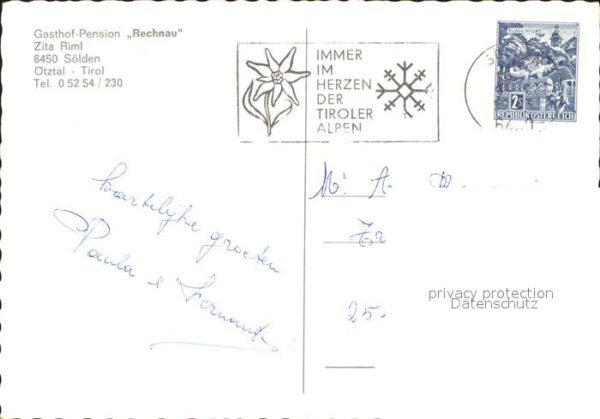 Gasthof-Pension „Rechnau"
Zita Riml
6450 Sölden
Ötztal - Tirol
Tel. 0 52 54 / 230
IMMER
IM
HERZEN
DER
TIROLER
ALPEN
KLAGENFURT
2S
REPUBLIK ÖSTERREICH
hartelijke groeten
Paula & Fernand
A
25.
privacy protection
Datenschutz